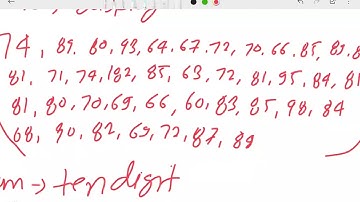 74, 89. 80, 93, 64. 67. 72, 70. 66. 85, 89. 8
81, 71, 74, 182, 85, 63, 72, 81, 95, 84, 81
81, 80, 70, 69, 66, 60, 83, 85, 98, 84
68, 90, 82, 69, 72, 87, 88
m → ten digit